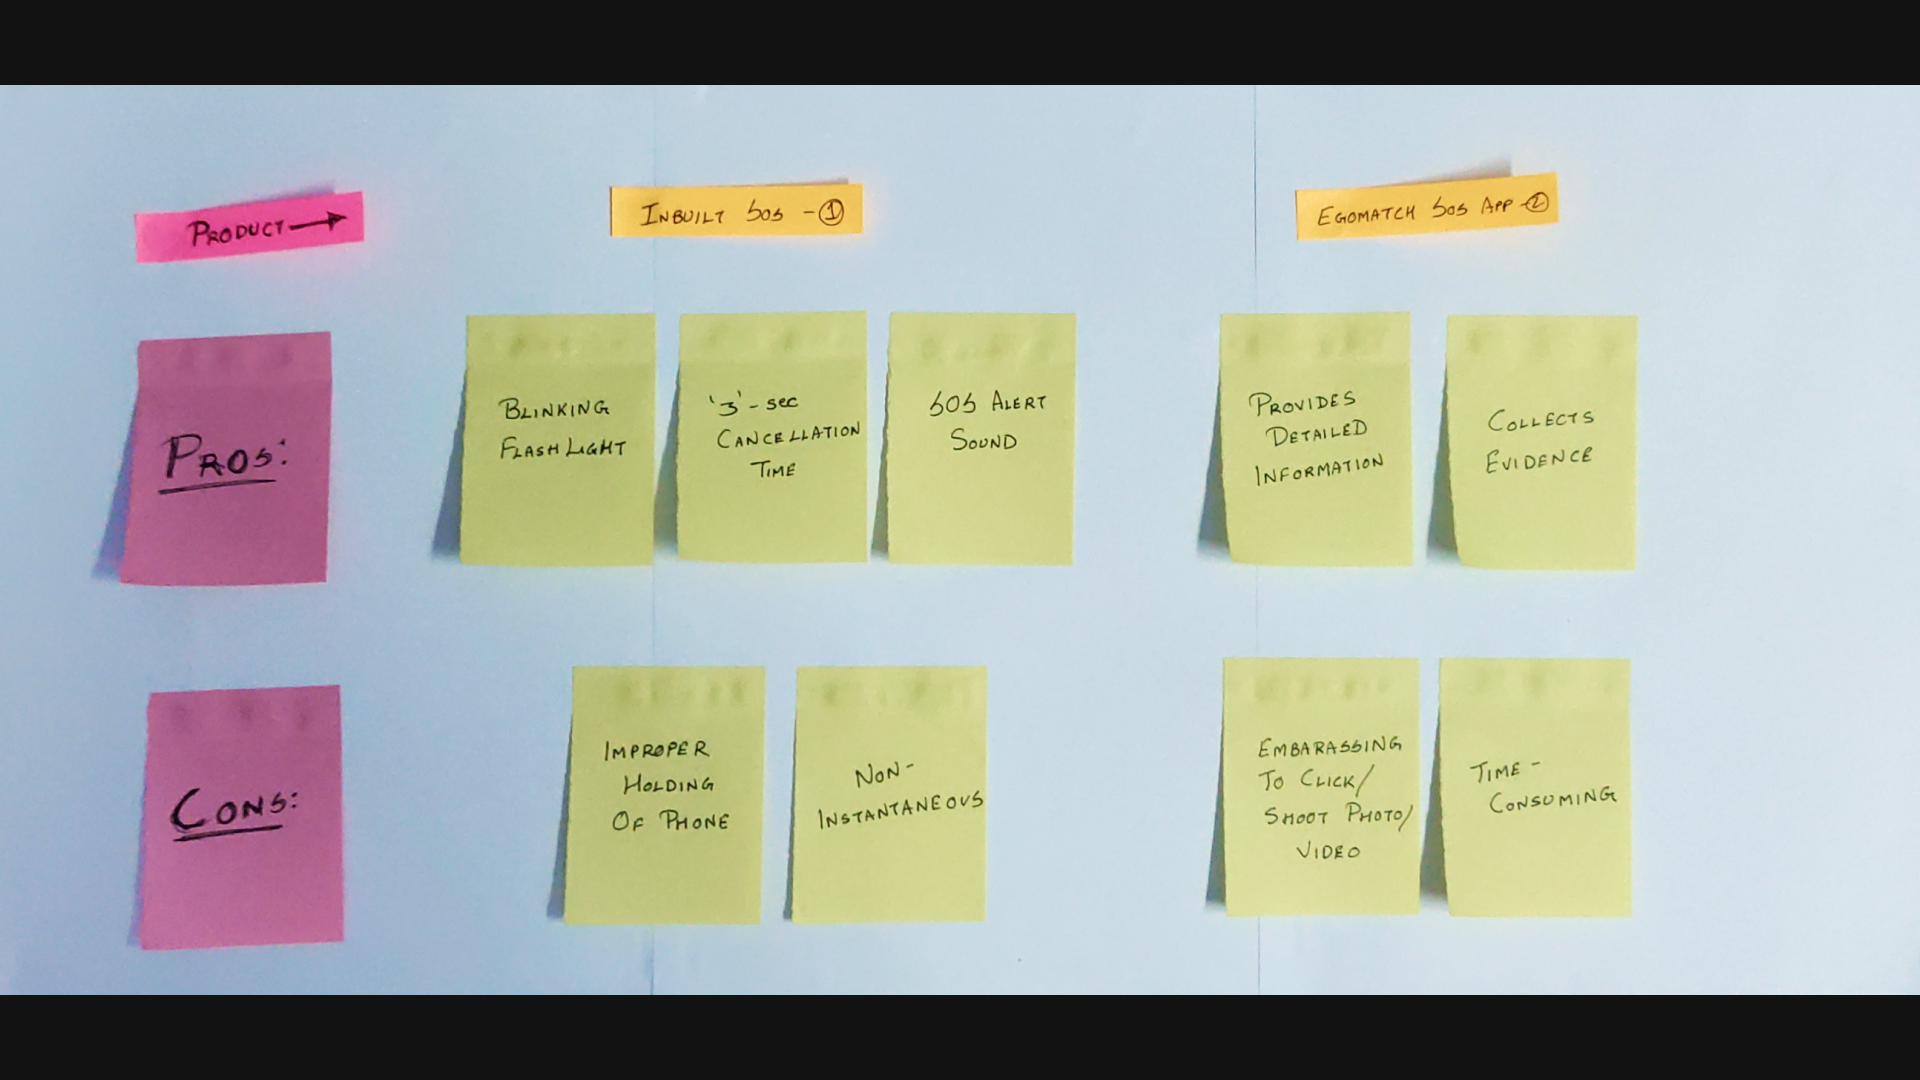 PRODUCT →
INBUILT SOS - ①
EGOMATCH SOS APP - ②
PROS:
BLINKING
FLASHLIGHT
'3' - SEC
CANCELLATION
TIME
SOS ALERT
SOUND
PROVIDES
DETAILED
INFORMATION
COLLECTS
EVIDENCE
CONS:
IMPROPER
HOLDING
OF PHONE
NON-
INSTANTANEOUS
EMBARASSING
TO CLICK/
SHOOT PHOTO/
VIDEO
TIME -
CONSUMING